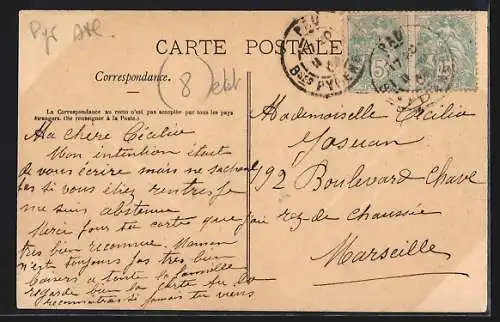 Pyr Atl.
CARTE POSTALE
Correspondance.
8
La Correspondance au recto n'est pas acceptée par tous les pays
étrangers. (Se renseigner à la Poste.)
PAU
Bses PYRÉNÉES
PAU
17
5
Ma chère Cécilia
Mon intention était
de vous écrire mais ne sachant
pas si vous étiez rentrés je
me suis abstenue
Merci pour ta carte que j'ai
très bien reconnue. Maman
n'est toujours pas très bien
Baisers à toute la famille
regarde bien la carte tu la
reconnaîtras si jamais tu viens
Mademoiselle Cécilia
192 Boulevard Chave
rez de chaussée
Marseille